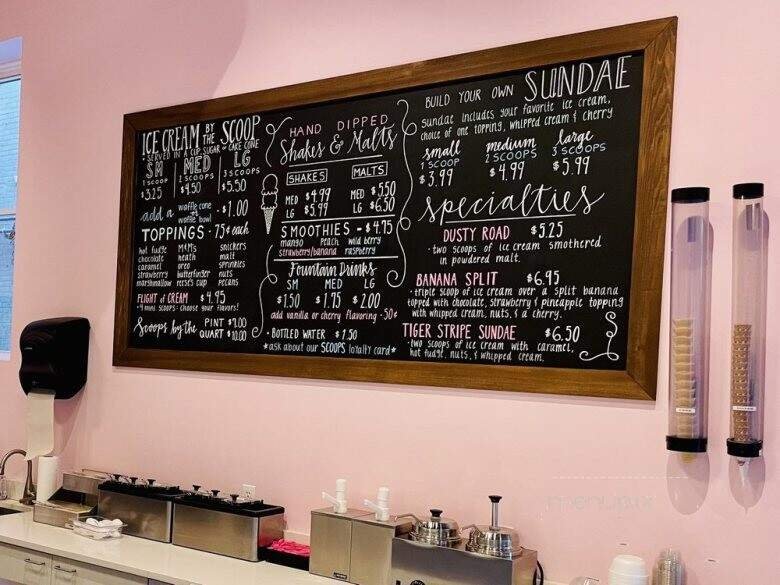 ICE CREAM BY THE SCOOP
• SERVED IN A CUP, SUGAR or CAKE CONE
SM MED LG
1 SCOOP 2 SCOOPS 3 SCOOPS
$3.25 $4.50 $5.50
add a waffle cone or waffle bowl • $1.00
TOPPINGS • 75¢ each
hot fudge M&M's snickers
chocolate heath malt
caramel oreo sprinkles
strawberry butterfinger nuts
marshmallow reese's cup pecans
FLIGHT of CREAM $4.95
• 4 mini scoops • choose your flavors!
Scoops by the PINT $7.00
QUART $10.00
HAND DIPPED
Shakes & Malts
SHAKES MALTS
MED $4.99 MED $5.50
LG $5.99 LG $6.50
SMOOTHIES - $4.75
mango peach wild berry
strawberry/banana raspberry
Fountain Drinks
SM MED LG
$1.50 $1.75 $2.00
add vanilla or cherry flavoring • 50¢
• BOTTLED WATER $1.50
*ask about our SCOOPS loyalty card*
BUILD YOUR OWN SUNDAE
sundae includes your favorite ice cream,
choice of one topping, whipped cream & cherry
small medium large
1 SCOOP 2 SCOOPS 3 SCOOPS
$3.99 $4.99 $5.99
specialties
DUSTY ROAD $5.25
• two scoops of ice cream smothered
in powdered malt.
BANANA SPLIT $6.95
• triple scoop of ice cream over a split banana
topped with chocolate, strawberry & pineapple topping
with whipped cream, nuts, & a cherry.
TIGER STRIPE SUNDAE $6.50
• two scoops of ice cream with caramel,
hot fudge, nuts, & whipped cream.